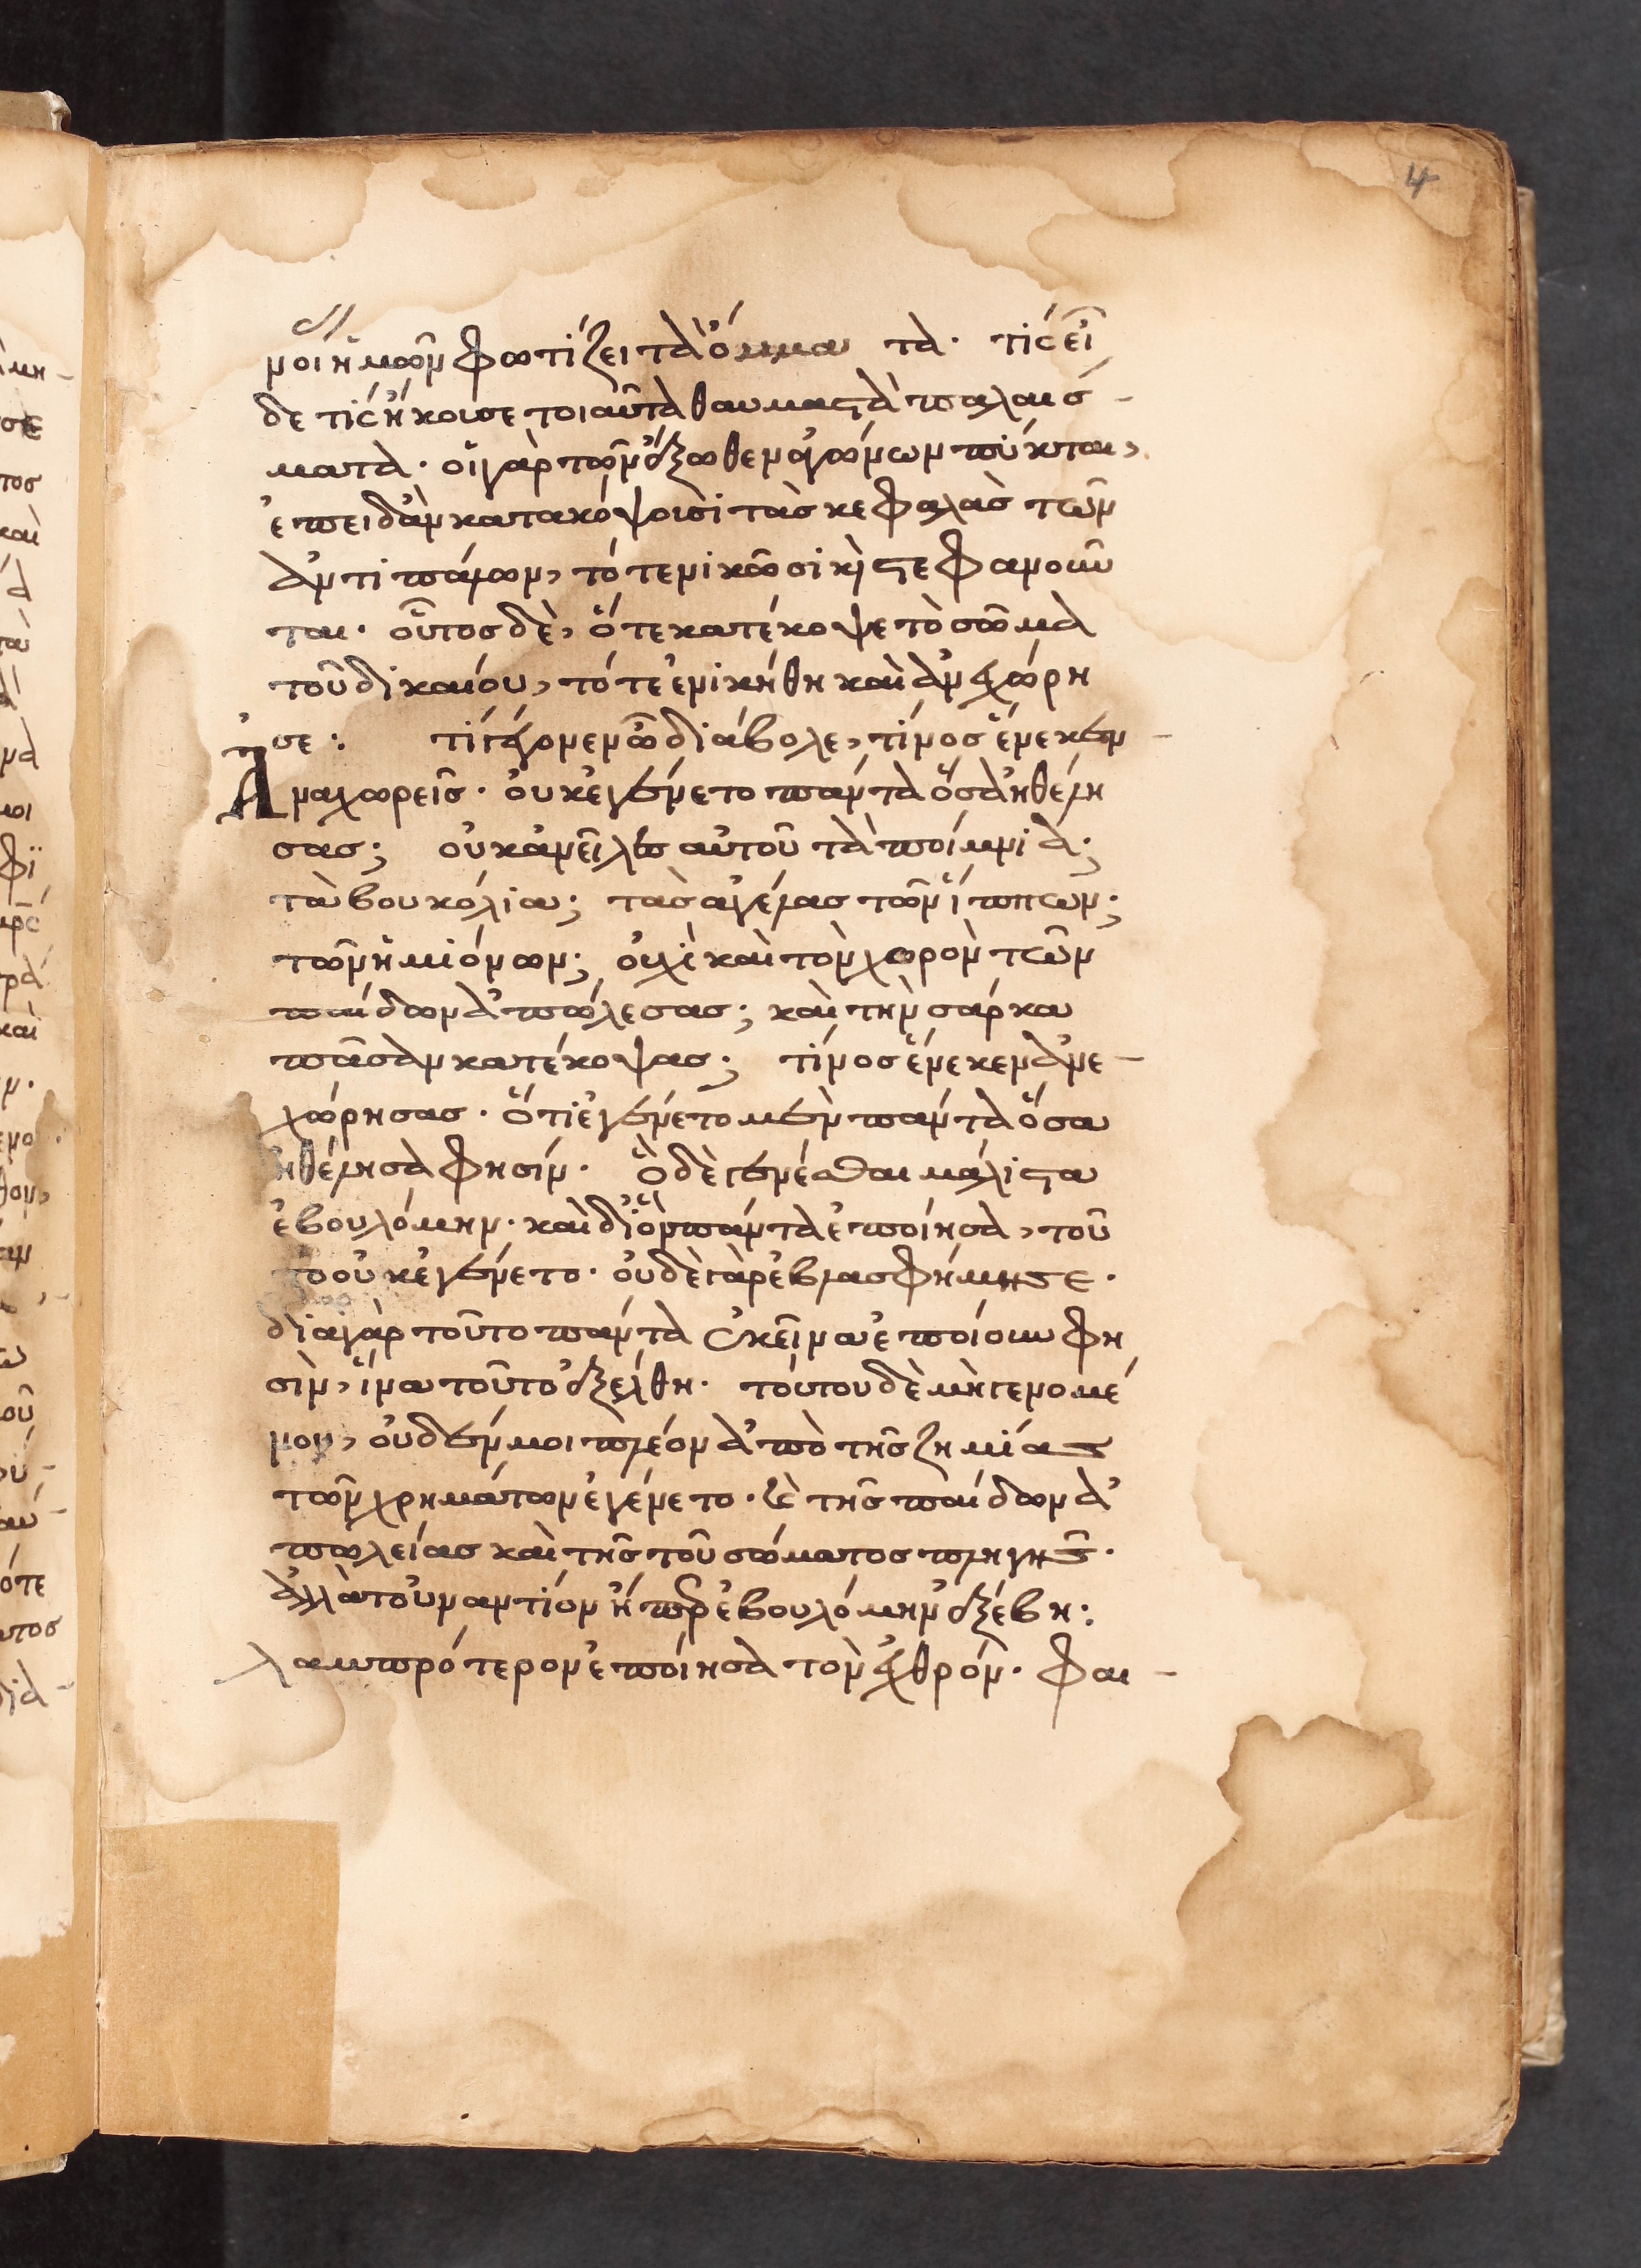 4
μοι ἡμῶν φωτίζει τὰ ὄμματα. τίς εἶ
δε τίς ἤκουσε τοιαῦτα θαυμαστὰ παλαίσ-
ματα. οἱ γὰρ τῶν ἔξωθεν ἀγώνων πύκται,
ἐπειδὰν κατακόψουσι τὰς κεφαλὰς τῶν
ἀντιπάλων, τότε νικῶσι κὶ στεφανοῦν
ται. οὗτος δὲ, ὅτε κατέκοψε τὸ σῶμα
τοῦ δικαίου, τότε ἐνικήθη καὶ ἀνεχώρη
σε: τί γέγονεν ὦ διάβολε, τίνος ἕνεκεν-
Ἀναχωρεῖς. οὐκ ἐγένετο πάντα ὅσα ἠθέλη
σας; οὐκ ἀνεῖλες αὐτοῦ τὰ ποίμνια;
τὰ βουκόλια; τὰς ἀγέλας τῶν ἵππων;
τῶν ἡμιόνων; οὐχὶ καὶ τὸν χορὸν τῶν
παίδων ἀπώλεσας; καὶ τὴν σάρκα
πᾶσαν κατέκοψας; τίνος ἕνεκεν ἀνε-
χώρησας. ὅτι ἐγένετο μὲν πάντα ὅσα
ἠθέλησα φησίν. ὃ δὲ γενέσθαι μάλιστα
ἐβουλόμην. καὶ δι' ὃ πάντα ἐποίησα, τοῦ
το οὐκ ἐγένετο. οὐδὲ γὰρ ἐβλασφήμησε.
διὰ γὰρ τοῦτο πάντα ἐκεῖνα ἐποίουν φη
σὶν, ἵνα τοῦτο ἐξέλθη. τούτου δὲ μὴ γενομέ
νου, οὐδέν μοι πλέον ἀπὸ τῆς ζημίας
τῶν χρημάτων ἐγένετο. καὶ τῆς παίδων ἀ
πωλείας καὶ τῆς τοῦ σώματος πληγῆς.
ἀλλὰ τοὐναντίον ἢ περ ἐβουλόμην ἐξέβη:
λαμπρότερον ἐποίησα τὸν ἐχθρόν. φαι-